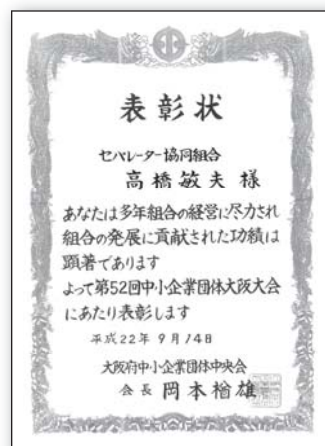 表彰状
セパレーター協同組合
高橋敏夫 様
あなたは多年組合の経営に尽力され
組合の発展に貢献された功績は
顕著であります
よって第52回中小企業団体大阪大会
にあたり表彰します
平成22年 9月14日
大阪府中小企業団体中央会
会長 岡本楢雄